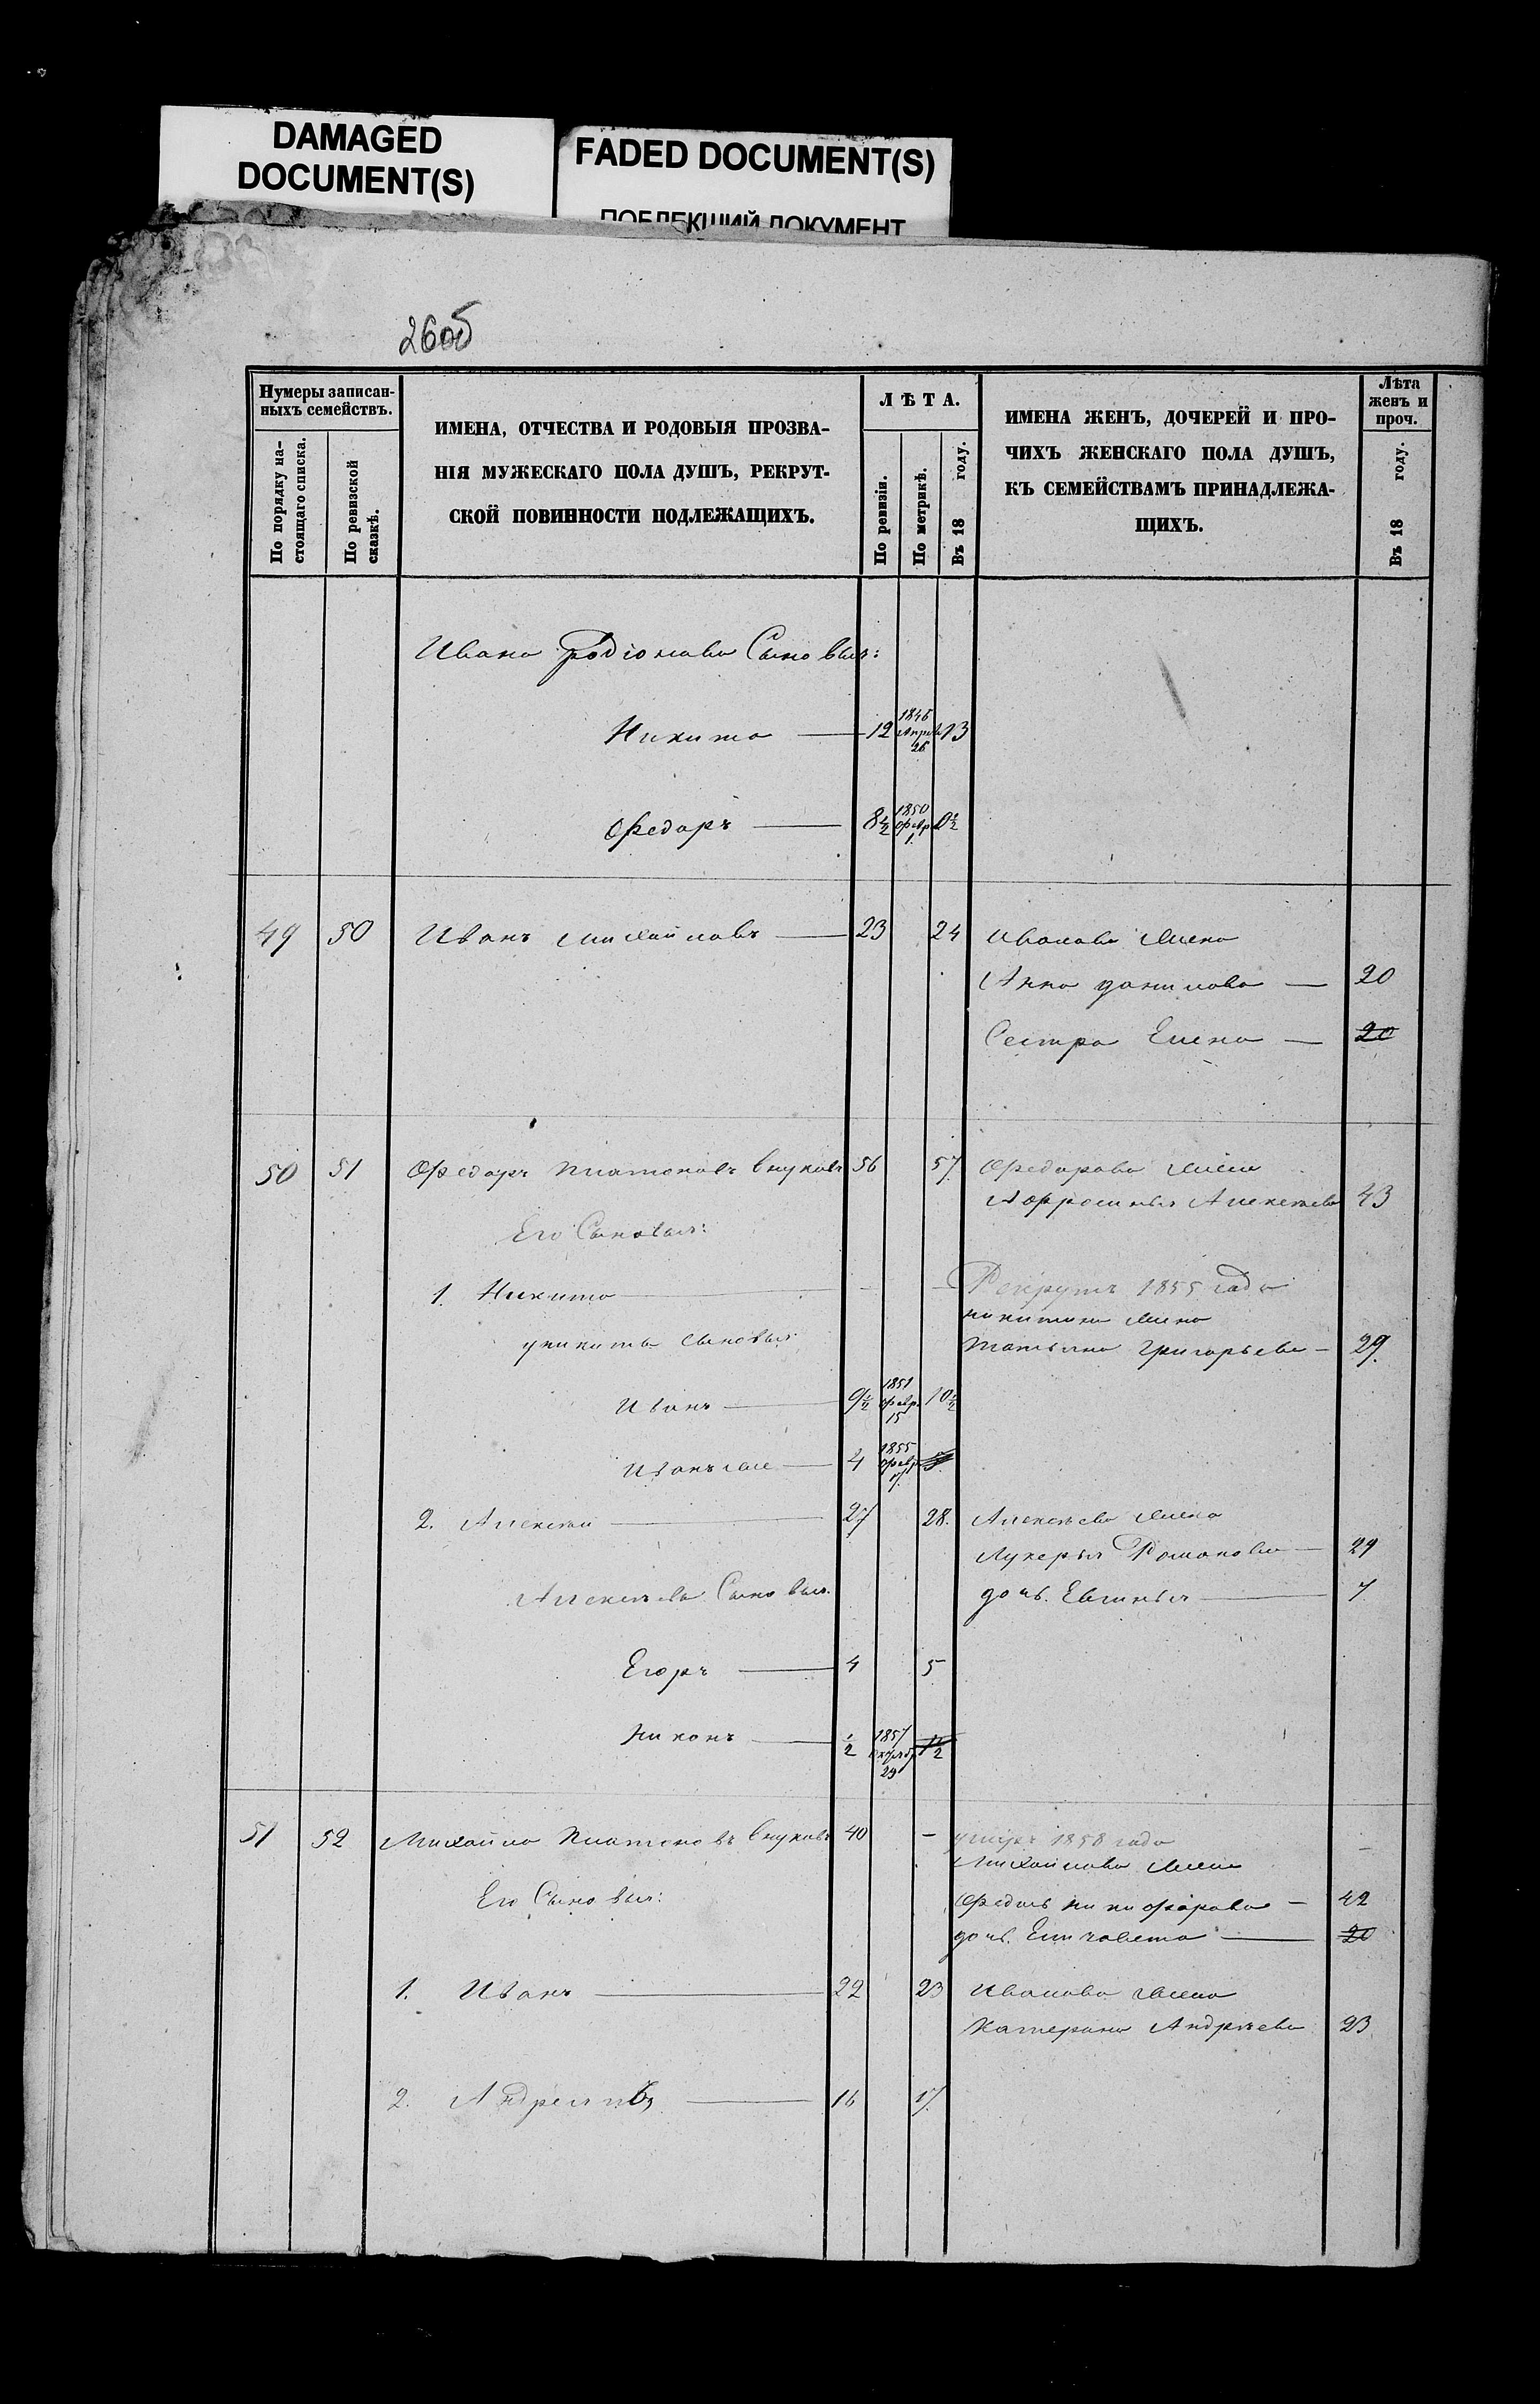 DAMAGED
DOCUMENT(S)
FADED DOCUMENT(S)
ПОБЛЕКШИЙ ДОКУМЕНТ
26об
Нумеры записан-
ныхъ семействъ.
По порядку на-
стоящаго списка.
По ревизской
сказкѣ.
ИМЕНА, ОТЧЕСТВА И РОДОВЫЯ ПРОЗВА-
НІЯ МУЖЕСКАГО ПОЛА ДУШЪ, РЕКРУТ-
СКОЙ ПОВИННОСТИ ПОДЛЕЖАЩИХЪ.
ЛѢТА.
По ревизіи.
По метрикѣ.
Въ 18 году.
ИМЕНА ЖЕНЪ, ДОЧЕРЕЙ И ПРО-
ЧИХЪ ЖЕНСКАГО ПОЛА ДУШЪ,
КЪ СЕМЕЙСТВАМЪ ПРИНАДЛЕЖА-
ЩИХЪ.
Лѣта
женъ и
проч.
Въ 18 году.
Ивана Родіонова Сыновья:
Никита — 12 Апрѣл 26 13
Федаръ — 8½ 1850 Февр. 1.
49 50 Иванъ Михайловъ — 23 24 Иванова Жена
Анна данилова — 20
Сестра Елена — 20
50 51 Федаръ Платоновъ Внуковъ 56 57 Федарова жена
Афросинья Алексѣева 43
Его Сыновья:
1. Никита — Рекрутъ 1855 года
никитина жена
Татьяна Григорьева — 29.
уникиты сыновья
Иванъ — 9½ 1851 Февр. 15 10½
Иванъ — 4 1855 Февр. 17. 5
2. Алексѣй — 27 28. Алексѣева Жена
Лукерья Романова — 29
Алексѣева Сыновья. дочь. Евгинья — 7
Егоръ — 4 5
Никонъ — ½ 1857 29 1½
51 52 Михайло Платоновъ Внуковъ 40 — умеръ 1858 года
Михайлова Жена
Его Сыновья: Федось никифарова — 42
дочь. Елизавета — 20
1. Иванъ — 22 23 Иванова жена
Катерина Андрѣева 23
2. Андреянъ — 16 17.